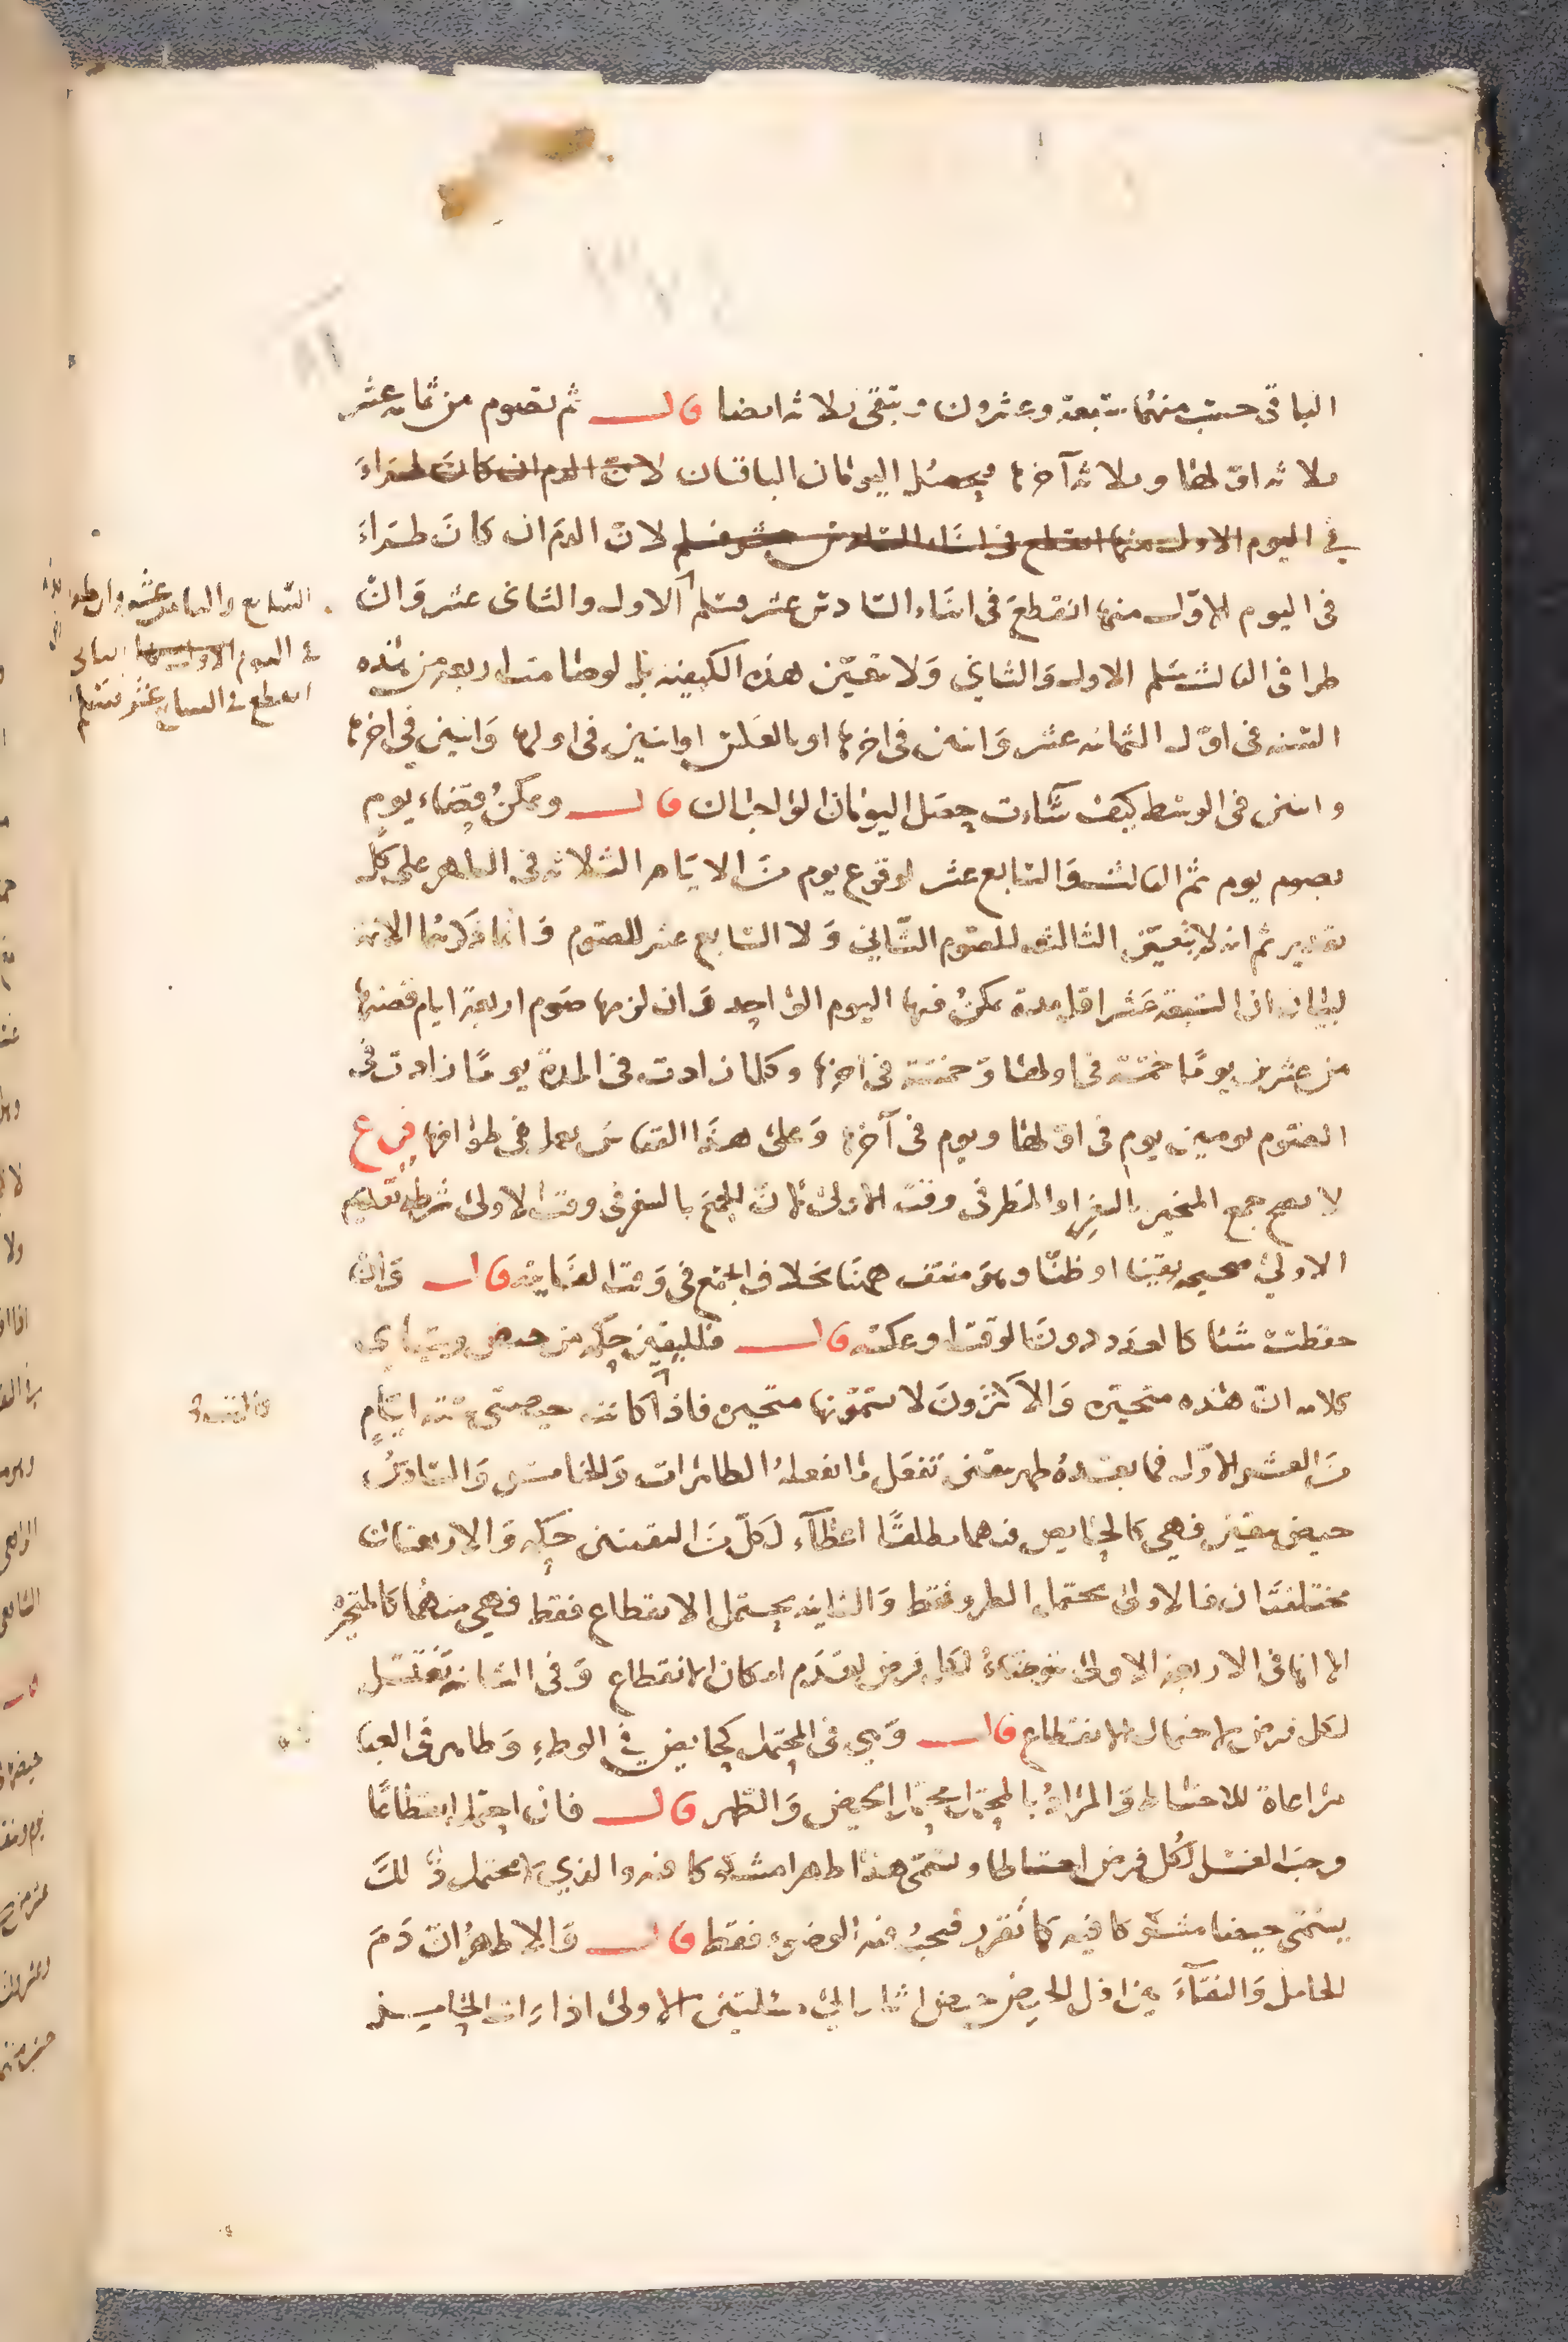 الباقى حسب منهما سبعة وعشرون وتبقى ثلاثه ايضا قال ثم تصوم من ثمانيه عشر
ثلاثه اولها وثلاثه آخرها فيحصل اليومان الباقيان لان الدم ان كان طراء
في اليوم الاول منها انقطع في اثناء السادس عشر فيسلم لان الدم ان كان طراء
فى اليوم الاول منها انقطع فى اثناء السادس عشر فيسلم الاول والثانى عشر وان
السابع والثامن عشر وان طرا
في اليوم الاول منها الثانى
انقطع في السابع عشر فيسلم
طرا فى الثالث سلم الاول والثاني ولا تتعين هذه الكيفيه بل لو صامت اربعه من هذه
الستة فى اول الثمانيه عشر واثنين فى اخرها او بالعكس او اثنين فى اولها واثنين في اخرها
واثنين فى الوسط كيف شاءت حصل اليومان الواجبان قال ويمكن قضاء يوم
بصوم يوم ثم الثالث والسابع عشر لوقوع يوم من الايام الثلاثه فى الطهر على كل
تقدير ثم انه لا يتعين الثالث للصوم الثاني ولا السابع عشر للصوم وانما ذكرهما الائمة
لبيان ان السبعة عشر اقل مدة يمكن فيها اليوم الواحد وان لزمها صوم اربعة ايام قضتها
من عشرين يوما خمسة فى اولها وخمسة فى اخرها وكلما زادت فى المدة يوما زادت فى
الصوم يومين يوم فى اولها ويوم فى آخرها وعلى هذا القياس يعمل فى طوافها فرع
لا يصح جمع المتحير بالسفر او المطر فى وقت الاولى لان الجمع بالسفر فى وقت الاولى شرطه تقديم
الاولى صحيحه يقينا او ظنا وهو منتف ههنا بخلاف الجمع فى وقت الثانيه قال وان
حفظت شيئا كالعدد دون الوقت او عكسه قال فلليقين حكمه من حيض ويتنادى
كلامه ان هذه متحيره والاكثرون لا يسمونها متحيره فاذا كانت حيضتي ستة ايام
من العشر الاول فما بعده طهر بيقين تفعل ما تفعله الطاهرات والخامس والسادس
حيض بيقين فهي كالحايض فيهما مطلقا اعطاء لكل من اليقينين حكمه والاربعتان
مختلفتان فالاولى تحتمل الطرو فقط والثانيه تحتمل الانقطاع فقط فهي منهما كالمتحيره
الا انها فى الاربعة الاولى تتوضاء لكل فرض لعدم امكان الانقطاع وفى الثانيه تغتسل
لكل فرض لاحتمال الانقطاع قال وهي فى المحتمل كحايض في الوطء وطاهر فى العبا
مراعاة للاحتياط والمراد بالمحتمل محتمل الحيض والطهر قال فان احتمل انقطاعا
وجب الغسل لكل فرض احتياطا ويسمى هذا طهرا مشكوكا فيه والذي لا يحتمل ذلك
يسمى حيضا مشكوكا فيه كما تقرر فيجب فيه الوضوء فقط قال والاظهر ان دم
الحامل والنقاء بين اقل الحيض حيض اشار الى مسئلتين الاولى اذا رات الحامل